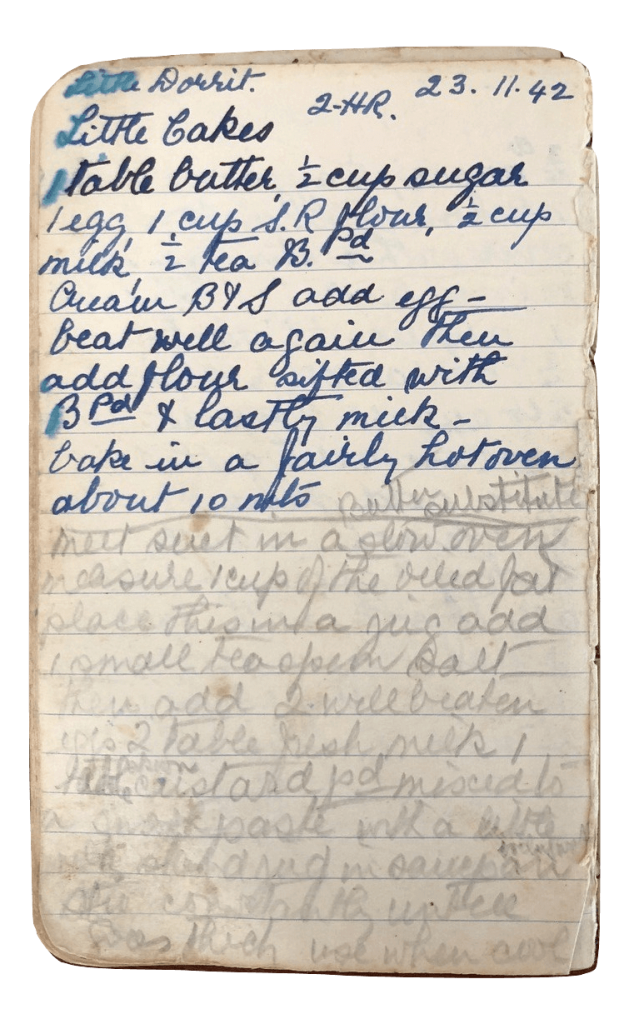 Little Dorrit.
2-HR. 23.11.42
Little Cakes
1 table butter, ½ cup sugar
1 egg, 1 cup S.R flour, ½ cup
milk, ½ tea B. Pd
Cream B & S add egg -
beat well again then
add flour sifted with
B Pd & lastly milk -
bake in a fairly hot oven
about 10 mts
Butter substitute
melt suet in a slow oven
measure 1 cup of the oiled fat
place this in a jug add
1 small teaspoon Salt
then add 2 well beaten
eggs 2 table fresh milk 1
custard pd mixed to
a paste with a little
stand jug in saucepan
stir constantly untill
goes thick use when cool